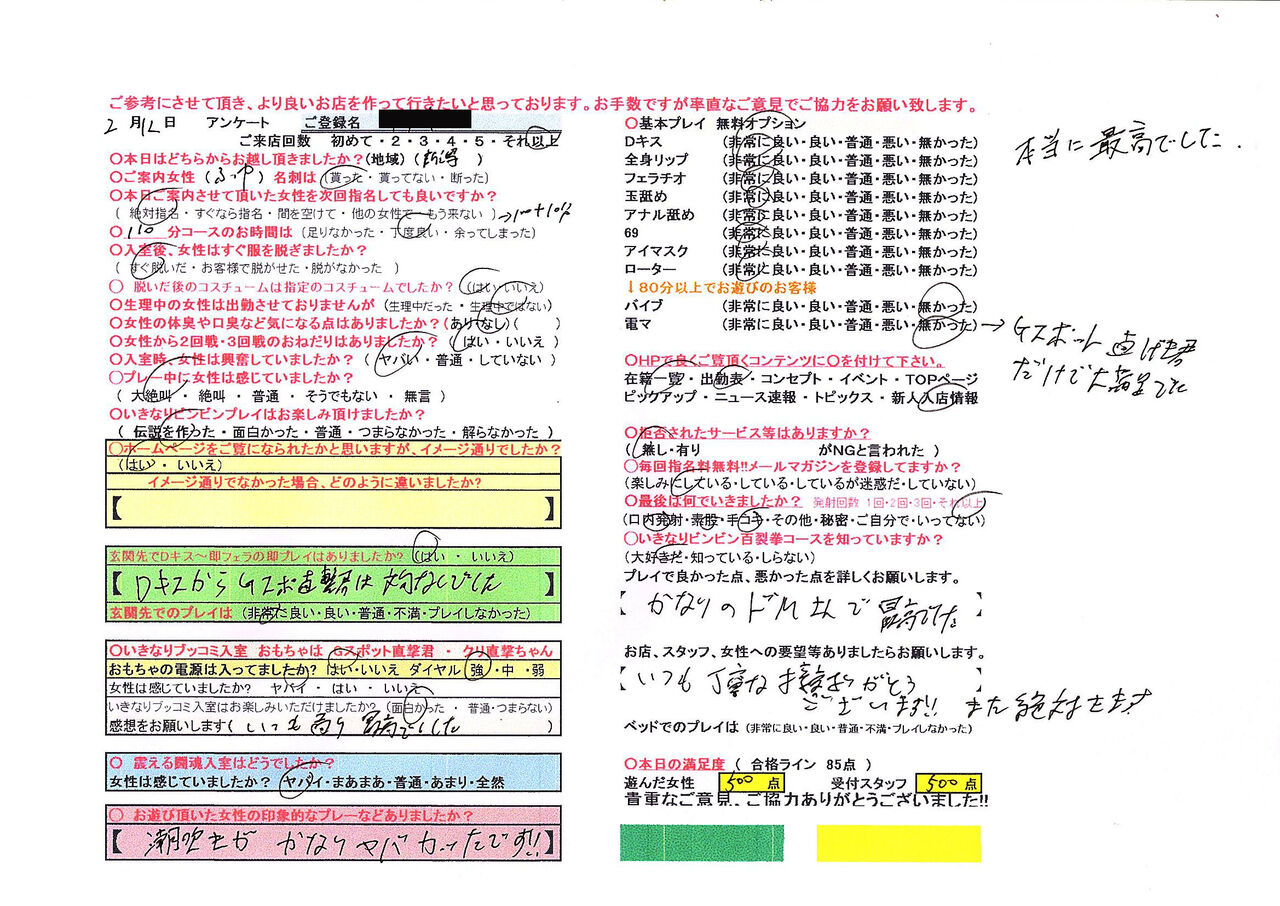 ご参考にさせて頂き、より良いお店を作って行きたいと思っております。お手数ですが率直なご意見でご協力をお願い致します。
2月12日 アンケート ご登録名
ご来店回数 初めて・2・3・4・5・それ以上
〇本日はどちらからお越し頂きましたか?(地域)( )
〇ご案内女性( )名刺は(貰った・貰ってない・断った)
〇本日ご案内させて頂いた女性を次回指名しても良いですか?
(絶対指名・すぐなら指名・間を空けて・他の女性で・もう来ない)→
〇110分コースのお時間は(足りなかった・丁度良い・余ってしまった)
〇入室後、女性はすぐ服を脱ぎましたか?
(すぐ脱いだ・お客様で脱がせた・脱がなかった )
〇 脱いだ後のコスチュームは指定のコスチュームでしたか?(はい・いいえ)
〇生理中の女性は出勤させておりませんが(生理中だった・生理中ではない)
〇女性の体臭や口臭など気になる点はありましたか?(あり・なし)( )
〇女性から2回戦・3回戦のおねだりはありましたか?(はい・いいえ)
〇入室時、女性は興奮していましたか?(ヤバい・普通・していない)
〇プレー中に女性は感じていましたか?
(大絶叫・絶叫・普通・そうでもない・無言)
〇いきなりビンビンプレイはお楽しみ頂けましたか?
(伝説を作った・面白かった・普通・つまらなかった・解らなかった )
〇ホームページをご覧になられたかと思いますが、イメージ通りでしたか?
(はい・いいえ)
イメージ通りでなかった場合、どのように違いましたか?
【 】
玄関先でDキス〜即フェラの即プレイはありましたか?(はい・いいえ)
【DキスからGスポ直撃君は文句なしでした】
玄関先でのプレイは(非常に良い・良い・普通・不満・プレイしなかった)
〇いきなりブッコミ入室 おもちゃは Gスポット直撃君・クリ直撃ちゃん
おもちゃの電源は入ってましたか? はい・いいえ ダイヤル 強・中・弱
女性は感じていましたか? ヤバイ・はい・いいえ
いきなりブッコミ入室はお楽しみいただけましたか?(面白かった・普通・つまらない)
感想をお願いします(いつも通り最高でした )
〇 震える闘魂入室はどうでしたか?
女性は感じていましたか? ヤバイ・まあまあ・普通・あまり・全然
〇 お遊び頂いた女性の印象的なプレーなどありましたか?
【潮吹きが かなりヤバかったです!!】
〇基本プレイ 無料オプション
Dキス (非常に良い・良い・普通・悪い・無かった)
全身リップ (非常に良い・良い・普通・悪い・無かった)
フェラチオ (非常に良い・良い・普通・悪い・無かった)
玉舐め (非常に良い・良い・普通・悪い・無かった)
アナル舐め (非常に良い・良い・普通・悪い・無かった)
69 (非常に良い・良い・普通・悪い・無かった)
アイマスク (非常に良い・良い・普通・悪い・無かった)
ローター (非常に良い・良い・普通・悪い・無かった)
↓80分以上でお遊びのお客様
バイブ (非常に良い・良い・普通・悪い・無かった)
電マ (非常に良い・良い・普通・悪い・無かった)
本当に最高でした.
→Gスポット直げき君
だけで大満足でした
〇HPで良くご覧頂くコンテンツに〇を付けて下さい。
在籍一覧・出勤表・コンセプト・イベント・TOPページ
ピックアップ・ニュース速報・トピックス・新人入店情報
〇拒否されたサービス等はありますか?
(無し・有り がNGと言われた )
〇毎回指名料無料!!メールマガジンを登録してますか?
(楽しみにしている・している・しているが迷惑だ・していない)
〇最後は何でいきましたか? 発射回数 1回・2回・3回・それ以上
(口内発射・素股・手コキ・その他・秘密・ご自分で・いってない)
〇いきなりビンビン百裂拳コースを知っていますか?
(大好きだ・知っている・しらない)
プレイで良かった点、悪かった点を詳しくお願いします。
【かなりのドMさんで最高でした】
お店、スタッフ、女性への要望等ありましたらお願いします。
【いつも丁寧な接客ありがとう
ございます!! また絶対きます】
ベッドでのプレイは(非常に良い・良い・普通・不満・プレイしなかった)
〇本日の満足度( 合格ライン 85点 )
遊んだ女性 500点 受付スタッフ 500点
貴重なご意見、ご協力ありがとうございました!!